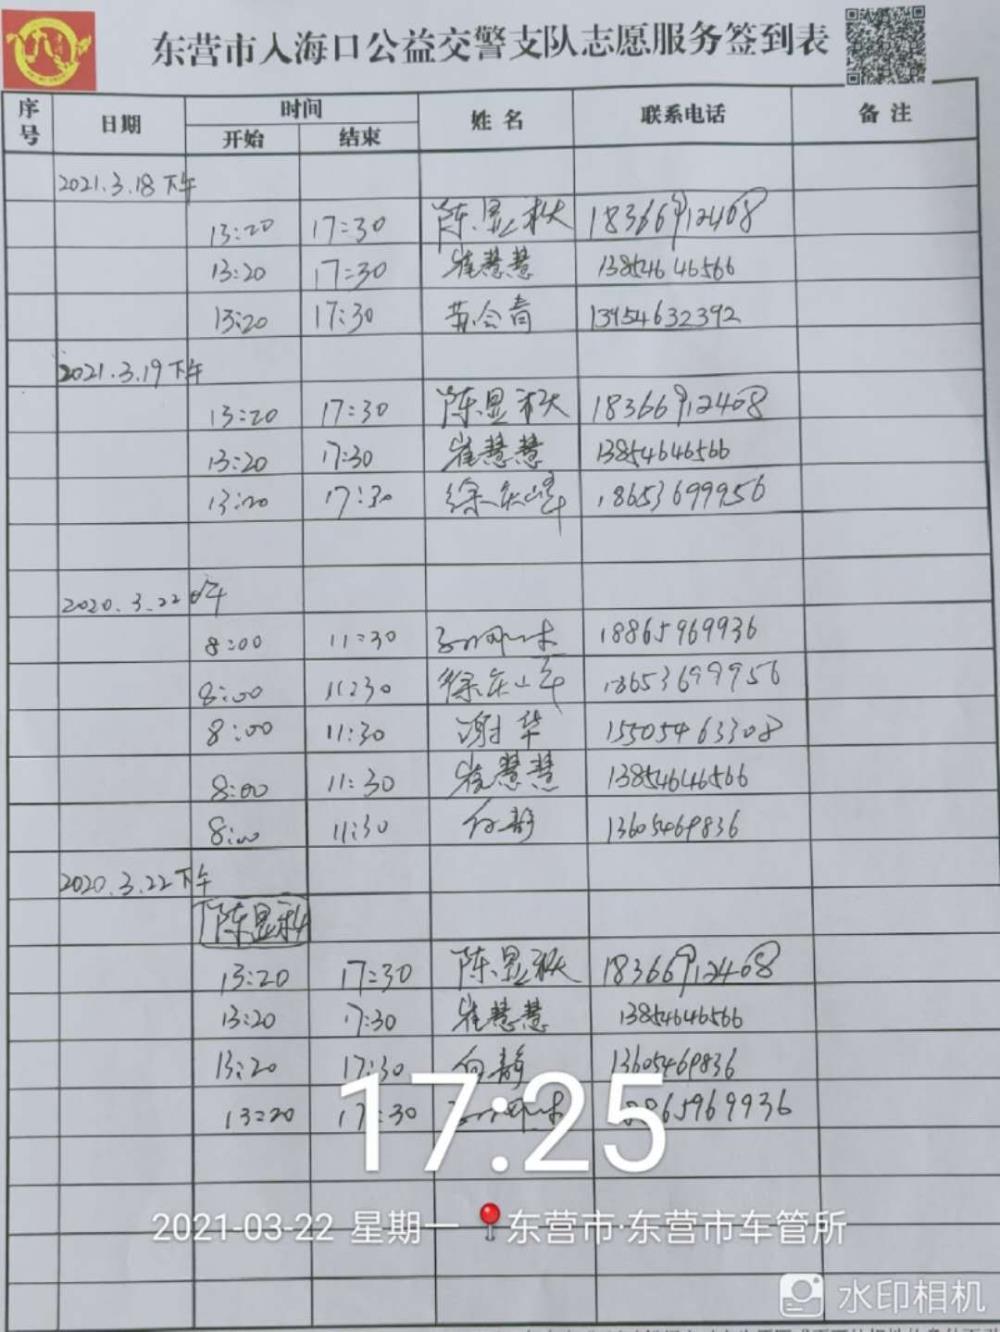 东营市入海口公益交警支队志愿服务签到表
序号 日期 时间 姓名 联系电话 备注
开始 结束
2021.3.18下午
13:20 17:30 陈显秋 18366912408
13:20 17:30 崔慧慧 13854646566
13:20 17:30 苏会青 13954632392
2021.3.19下午
13:20 17:30 陈显秋 18366912408
13:20 17:30 崔慧慧 13854646566
13:20 17:30 徐庆峰 18653699956
2020.3.22上午
8:00 11:30 18865969936
8:00 11:30 徐庆峰 18653699956
8:00 11:30 谢华 15505463308
8:00 11:30 崔慧慧 13854646566
8:00 11:30 向静 13605469836
2020.3.22下午
陈显秋
13:20 17:30 陈显秋 18366912408
13:20 17:30 崔慧慧 13854646566
13:20 17:30 向静 13605469836
13:20 17:30 18865969936
17:25
2021-03-22 星期一 东营市·东营市车管所
水印相机